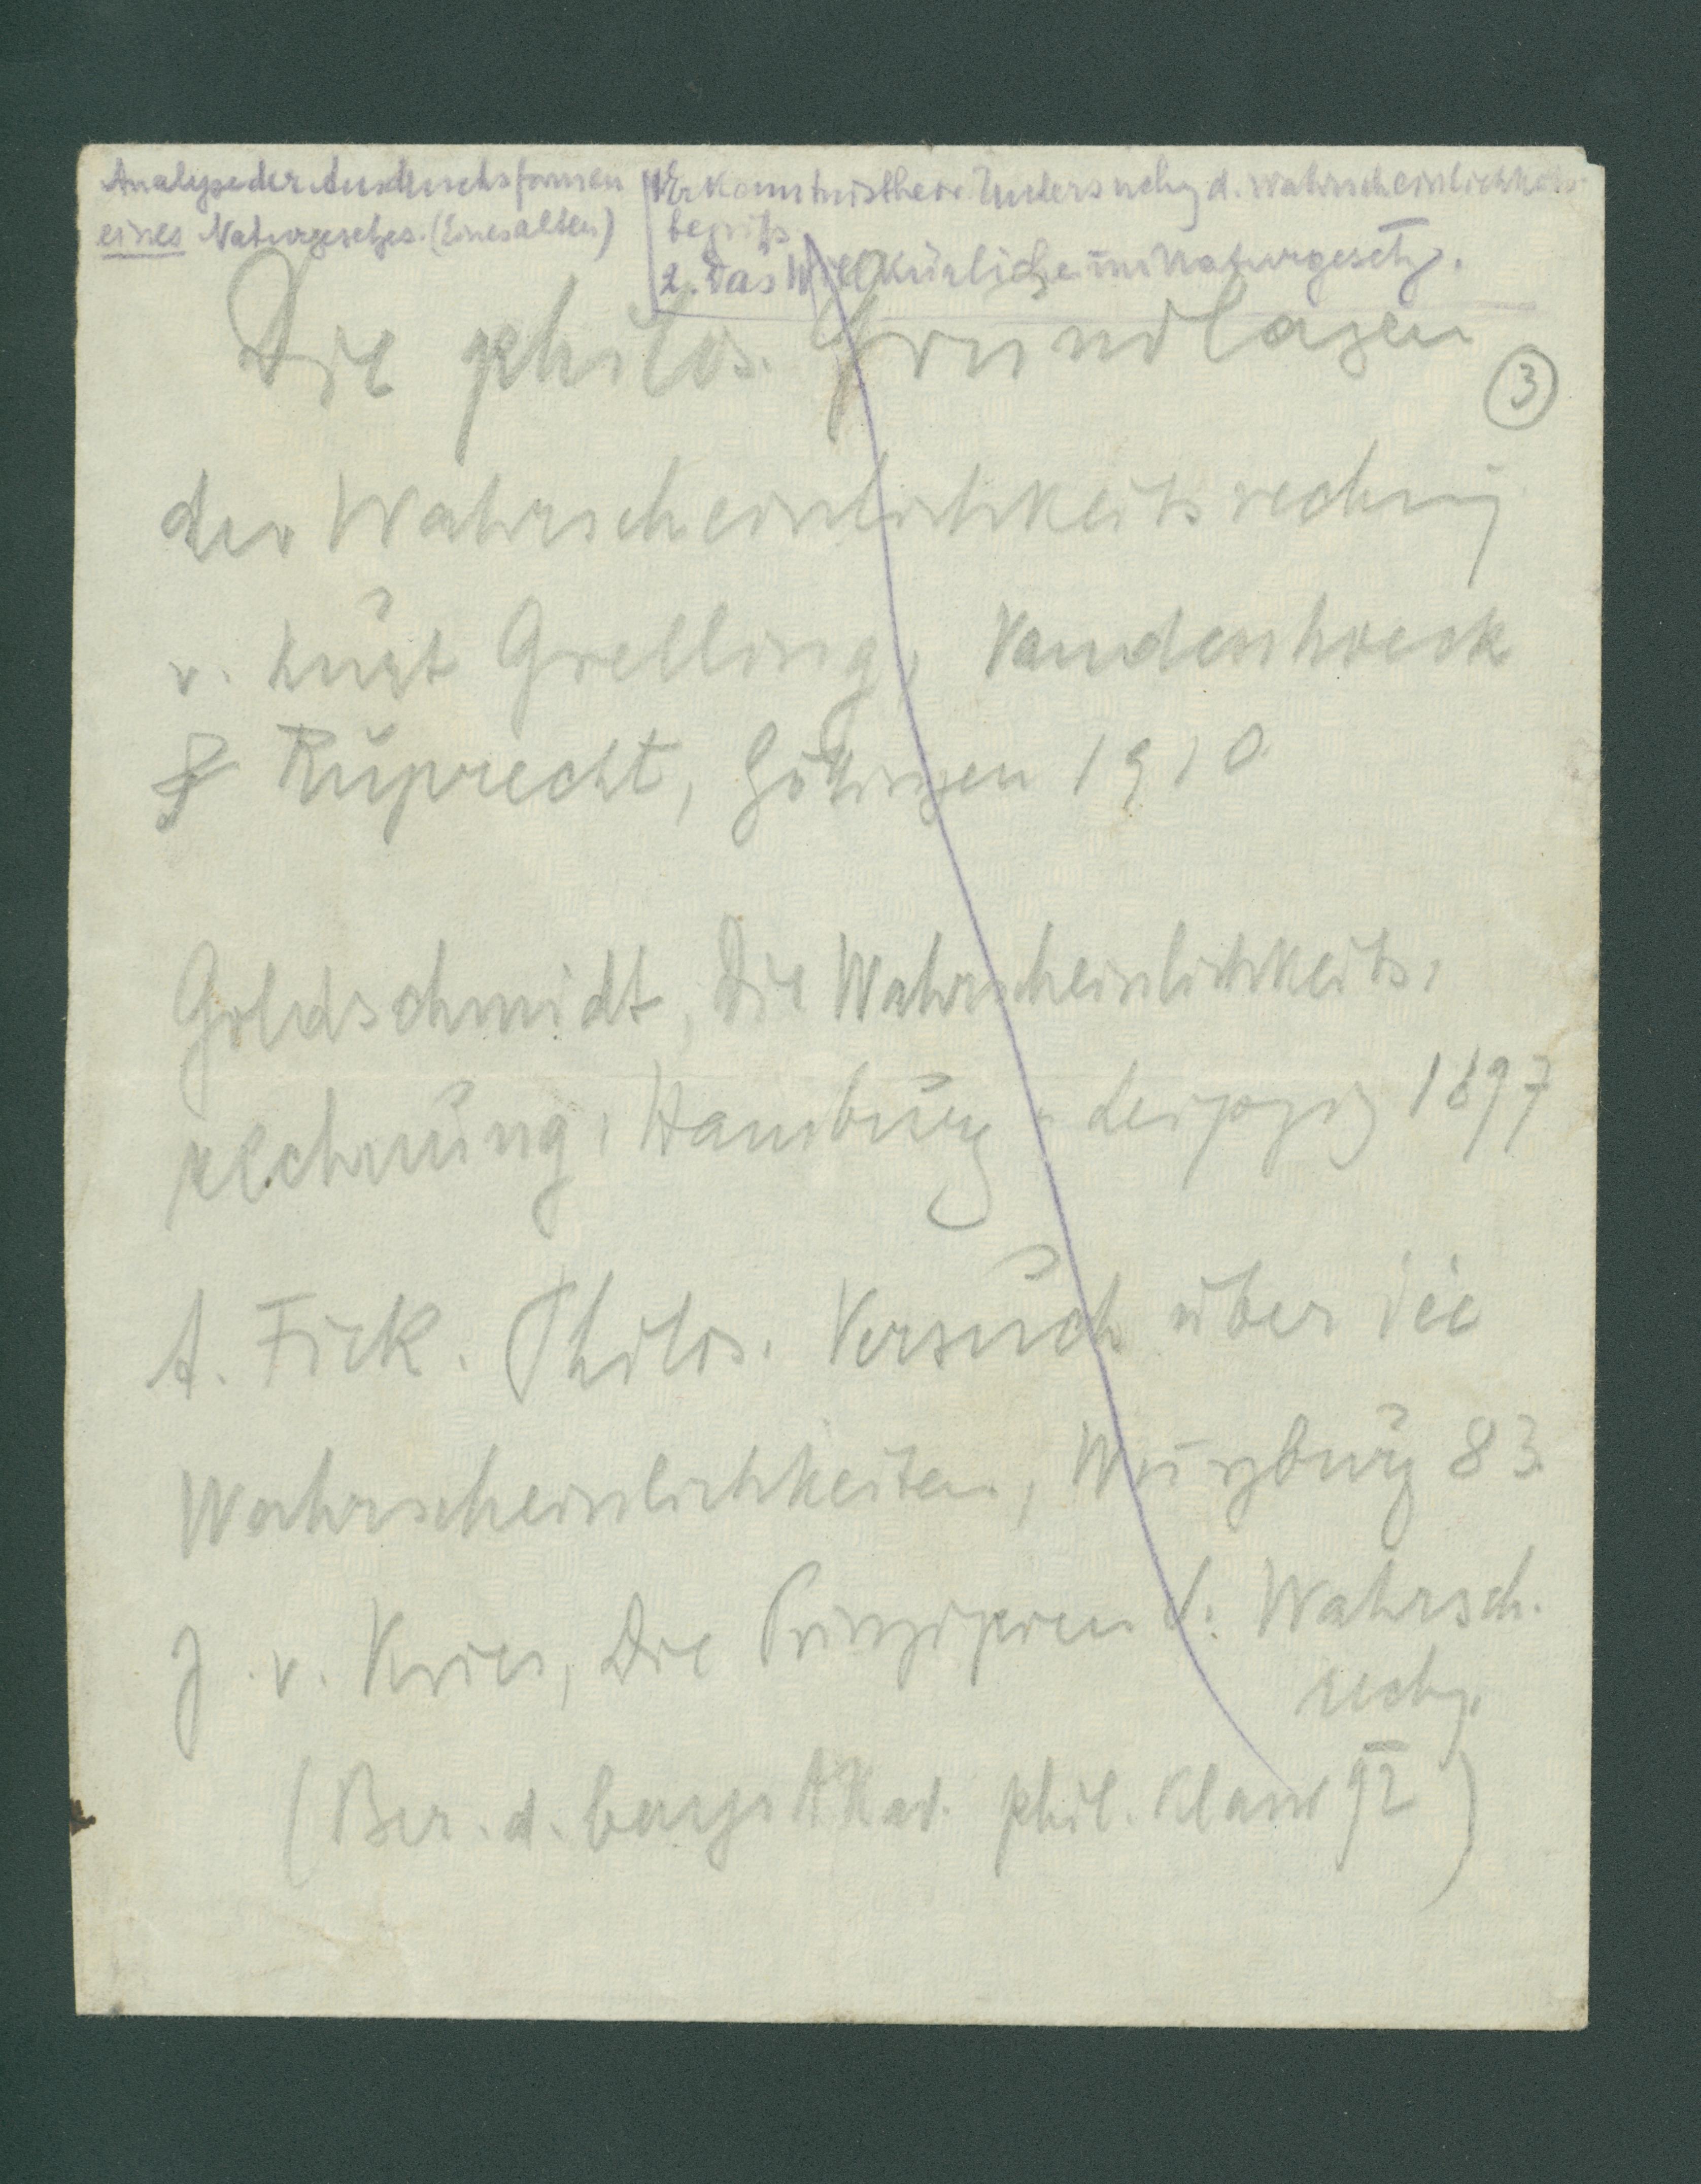 Analyse der Ausdrucksformen
eines Naturgesetzes. (Eines alten)
1. Erkenntnistheor. Untersuchg d. Wahrscheinlichkeits-
begriffs
2. Das Willkürliche im Naturgesetz.
Die philos. Grundlagen
3
der Wahrscheinlichkeitsrechng
v. Kurt Grelling, Vandenhoeck
& Ruprecht, Göttingen 1910
Goldschmidt, Die Wahrscheinlichkeits-
rechnung, Hamburg - Leipzig 1897
A. Fick. Philos. Versuch über die
Wahrscheinlichkeiten, Würzburg 83
J. v. Kries, Die Prinzipien d. Wahrsch.
rechg.
(Ber. d. bayr. Akad. phil. Klasse 92)